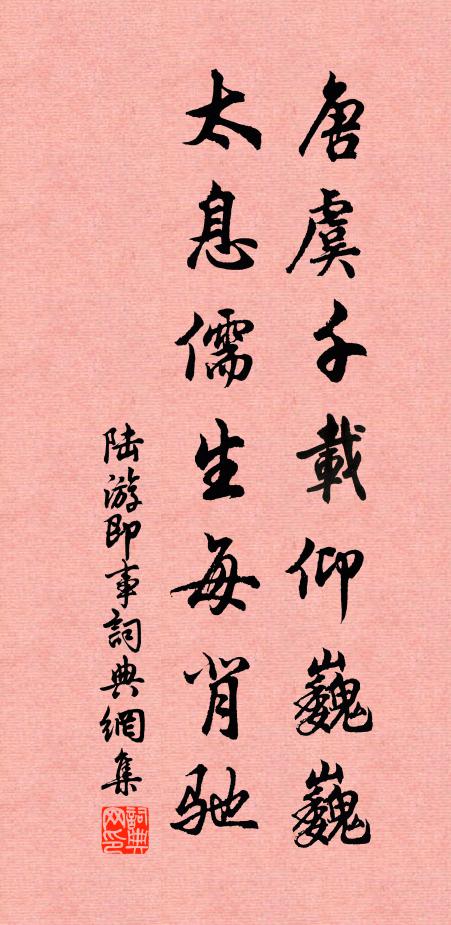 唐虞千載仰巍巍
太息儒生每背馳
陸游即事詞典網集
詞典网印